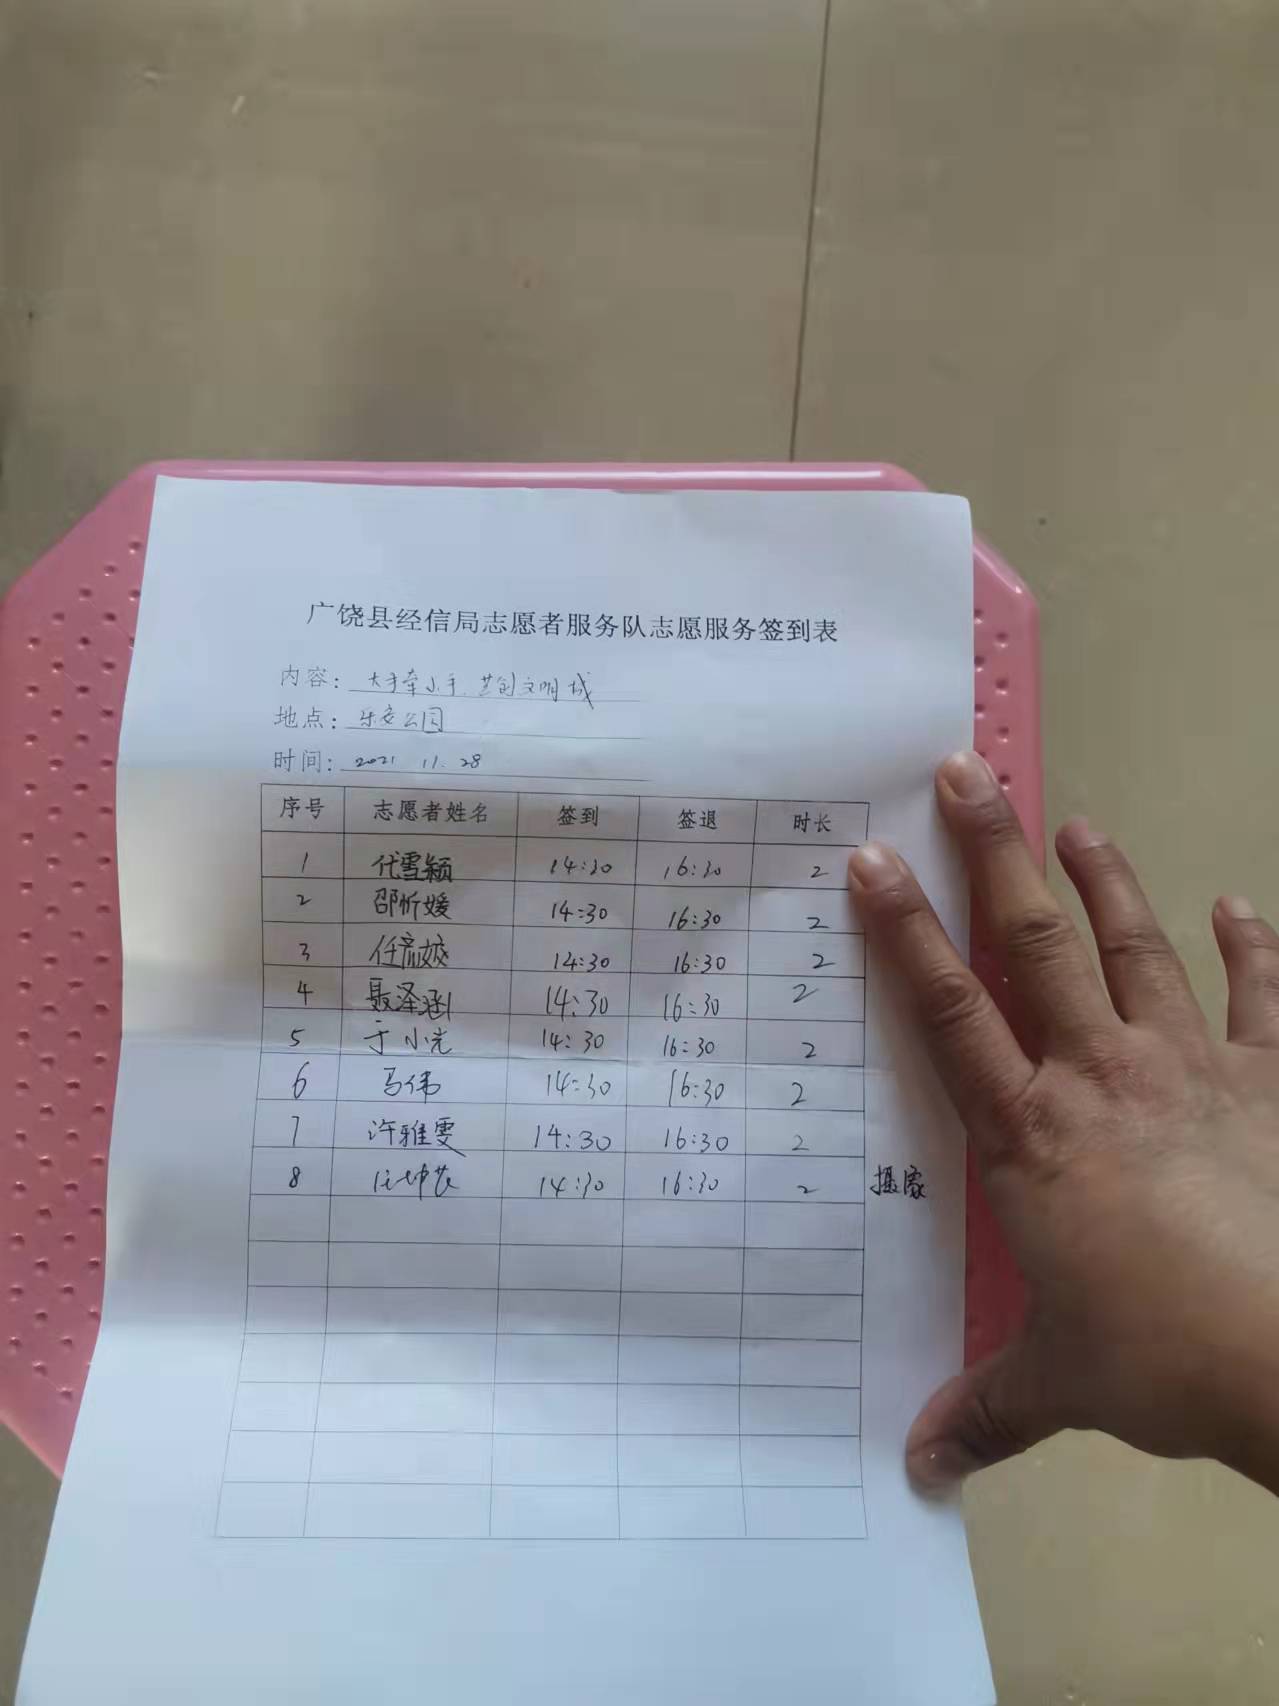 广饶县经信局志愿者服务队志愿服务签到表
内容：大手牵小手 共创文明城
地点：乐安公园
时间：2021 11.28
序号 志愿者姓名 签到 签退 时长
1 代雪颖 14:30 16:30 2
2 邵忻媛 14:30 16:30 2
3 14:30 16:30 2
4 聂泽涵 14:30 16:30 2
5 于小光 14:30 16:30 2
6 马伟 14:30 16:30 2
7 许雅雯 14:30 16:30 2
8 14:30 16:30 2 摄像